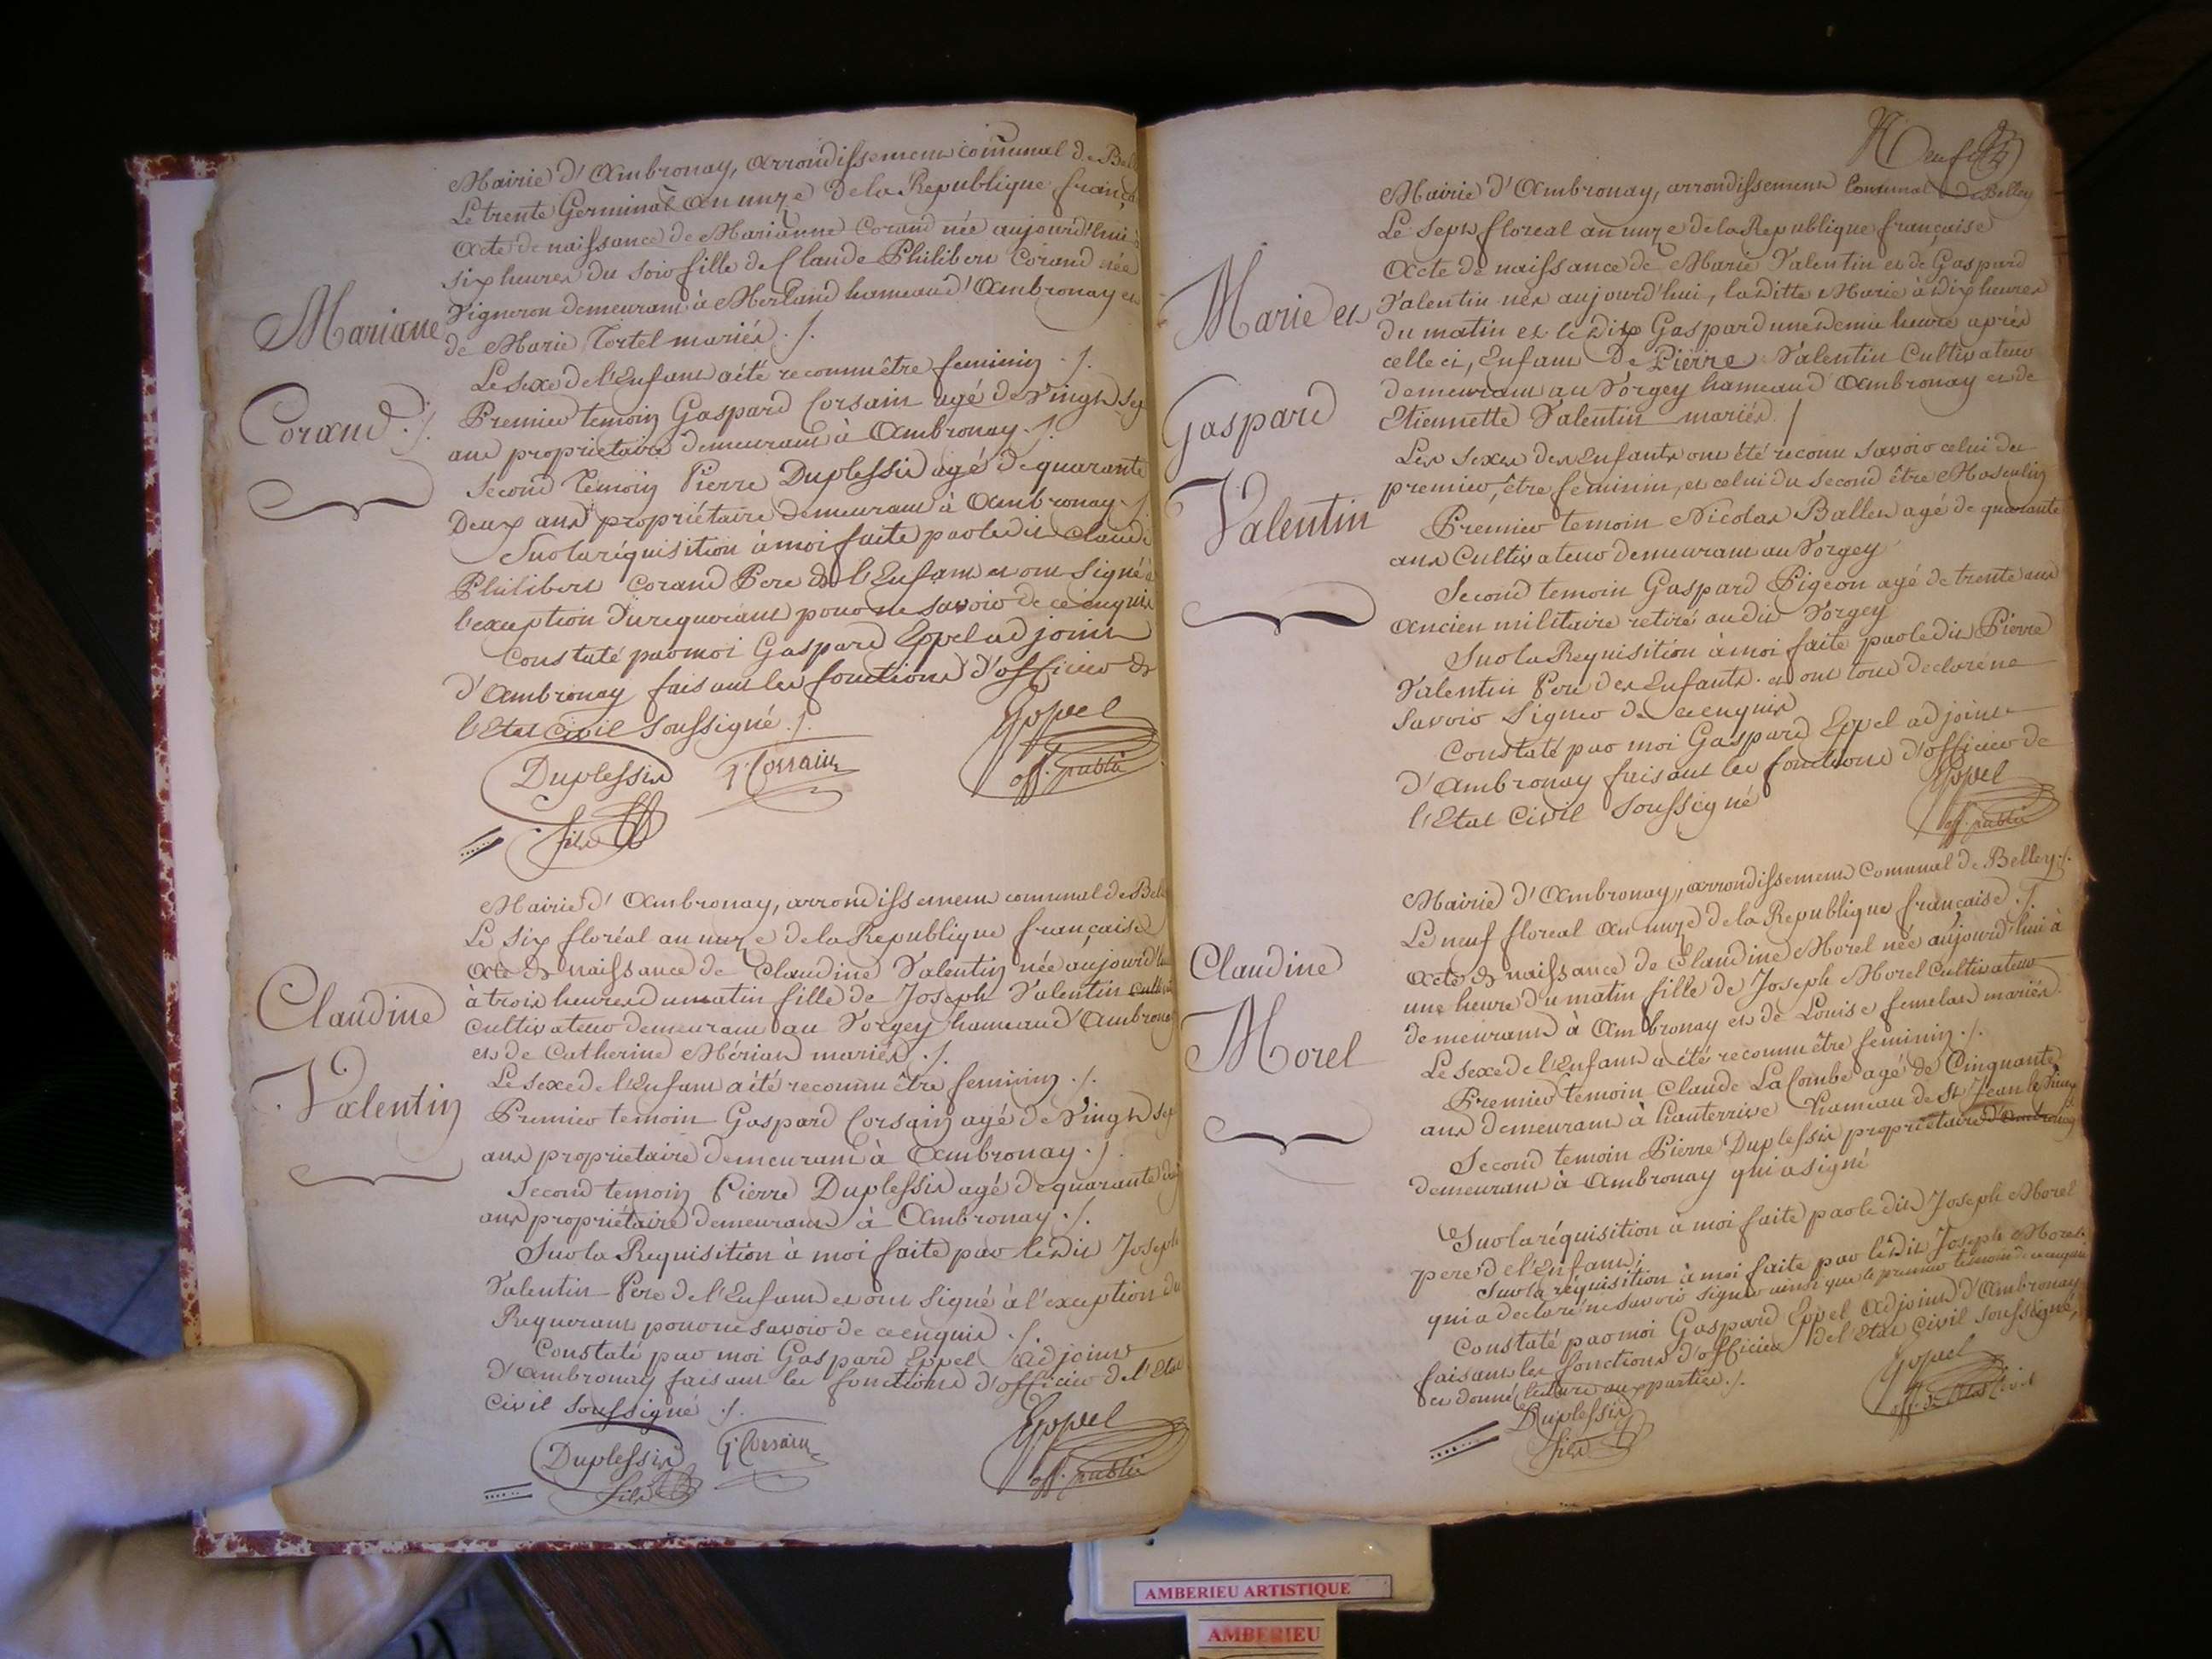 Mairie d'Ambronay, arrondissement communal de Bell
Le trente Germinal an unze de la Republique frança
Acte de naissance de Marianne Corand née aujourd'hui à
six heures du soir fille de Claude Philibert Corand
Vigneron demeurant à Merland hameau d'Ambronay et
de Marie Tortel mariés ./.
Le sexe de l'Enfant a été reconnu être feminin ./.
Premier temoin Gaspard Corsain agé de vingt sep
ans proprietaire demeurant à Ambronay ./.
Second temoin Pierre Duplessis agé de quarante
Deux ans propriétaire demeurant à Ambronay ./.
Sur la réquisition à moi faite par le dit Claude
Philibert Corand Pere de l'Enfant et ont signé à
l'exeption du requerant pour ne savoir de ce enquis
Constaté par moi Gaspard Eppel adjoint
d'Ambronay faisant les fonctions d'officier de
l'Etat Civil soussigné ./.
Mariane
Corand ./.
Duplessis
fils
G. Corsain
Eppel
off. public
Mairie d'Ambronay, arrondissement communal de Bell
Le six floréal an unze de la Republique française
Acte de naissance de Claudine Valentin née aujourd'hui
à trois heures du matin fille de Joseph Valentin
cultivateur demeurant au Vorgey hameau d'Ambronay
et de Catherine Mérian mariés ./.
Le sexe de l'Enfant a été reconnu être feminin ./.
Premier temoin Gaspard Corsain agé de vingt sep
ans proprietaire demeurant à Ambronay ./.
Second temoin Pierre Duplessis agé de quarante deux
ans propriétaire demeurant à Ambronay ./.
Sur la Requisition à moi faite par le dit Joseph
Valentin Pere de l'Enfant et ont signé à l'exeption du
Requerant pour ne savoir de ce enquis ./.
Constaté par moi Gaspard Eppel adjoint
d'Ambronay faisant les fonctions d'officier de l'Etat
civil soussigné ./.
Claudine
Valentin
Duplessis
fils
G. Corsain
Eppel
off. public
Neuf
Mairie d'Ambronay, arrondissement Communal de Belley
Le sept floreal an unze de la Republique française
Acte de naissance de Marie Valentin et de Gaspard
Valentin nés aujourd'hui, la ditte Marie à dix heures
du matin et le dit Gaspard une demie heure après
celle ci, Enfans de Pierre Valentin Cultivateur
demeurant au Vorgey hameau d'Ambronay et de
Etiennette Valentin mariés /
Les sexes des Enfants ont été reconu savoir celui du
premier, être feminin, et celui du second être Masculin
Premier temoin Nicolas Ballet agé de quarante
ans Cultivateur demeurant au Vorgey
Second temoin Gaspard Pigeon agé de trente ans
Ancien militaire retiré au dit Vorgey
Sur la Requisition à moi faite par le dit Pierre
Valentin Pere des Enfants et ont tous declaré ne
savoir signer de ce enquis
Constaté par moi Gaspard Eppel adjoint
d'Ambronay faisant les fonctions d'officier de
l'Etat Civil soussigné
Marie et
Gaspard
Valentin
Eppel
off. public
Mairie d'Ambronay, arrondissement Communal de Belley ./.
Le neuf floreal an unze de la Republique française ./.
Acte de naissance de Claudine Morel née aujourd'hui à
une heure du matin fille de Joseph Morel Cultivateur
demeurant à Ambronay et de Louise femelat mariés
Le sexe de l'Enfant a été reconnu être feminin ./.
Premier temoin Claude La Combe agé de Cinquante
ans demeurant à hauterrive hameau de St Jean le Vieux
Second temoin Pierre Duplessis propriétaire d'Ambronay
demeurant à Ambronay qui a signé
Sur la réquisition à moi faite par le dit Joseph Morel
pere de l'Enfant;
Sur la réquisition à moi faite par le dit Joseph Morel
qui a declaré ne savoir signer ainsi que le premier temoin de ce enquis
Constaté par moi Gaspard Eppel Adjoint d'Ambronay
faisant les fonctions d'officier de l'Etat Civil soussigné,
et donné lecture aux parties ./.
Claudine
Morel
Duplessis
fils
Eppel
off. de l'Etat Civil
AMBERIEU ARTISTIQUE
AMBERIEU